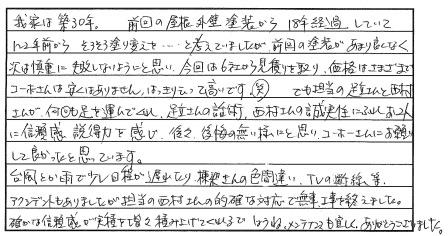 我家は築30年。 前回の屋根外壁塗装から18年経過していて
1~2年前から そろそろ塗り変えを…と考えていましたが、前回の塗装があまり良くなく
次は慎重に失敗しないようにと思い、今回は6社から見積りを取り、価格はさまざまで
コーホーさんは安くはありません、はっきり言って高いです。(笑) でも担当の足立さんと西村
さんが、何回も足を運んでくれ、足立さんの話術、西村さんの誠実性にふれ、お二人
に信頼感、説得力を感じ、後々、後悔の無い様にと思い、コーホーさんにお願い
して良かったと思っています。
台風とか雨で少し日程が遅れたり、職人さんの色間違い、TVの断線、等
アクシデントもありましたが担当の西村さんの的確な対応で無事工事を終えました。
確かな信頼感が実積を増々積み上げてくれるでしょうね。メンテナンスも宜しく、ありがとうございました。